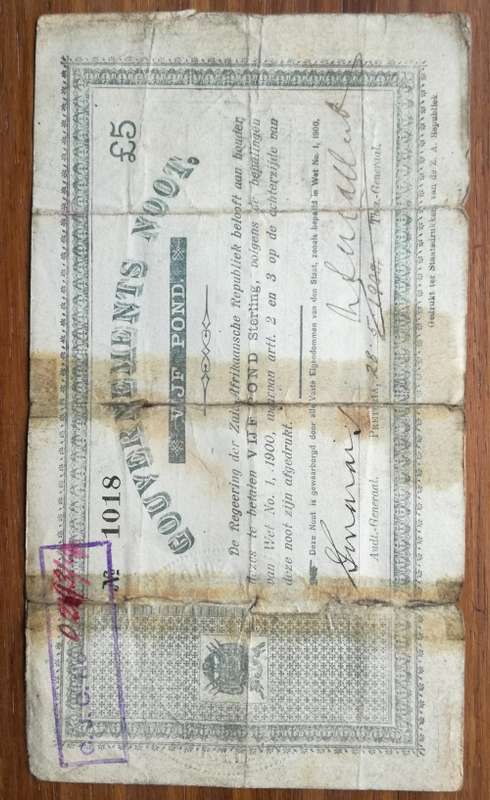 № 1018
£5
GOUVERNEMENTS NOOT.
VIJF POND
De Regeering der Zuid Afrikaansche Republiek belooft aan houder
dezes te betalen VIJF POND Sterling, volgens de bepalingen
van Wet No. 1, 1900, waarvan artt. 2 en 3 op de achterzijde van
deze noot zijn afgedrukt.
Deze Noot is gewaarborgd door alle Vaste Eigendommen van den Staat, zooals bepaald in Wet No. 1, 1900,
Audt.-Generaal.
28
Thes.-Generaal.
Gedrukt ter Staatsdrukkerij van de Z. A. Republiek.